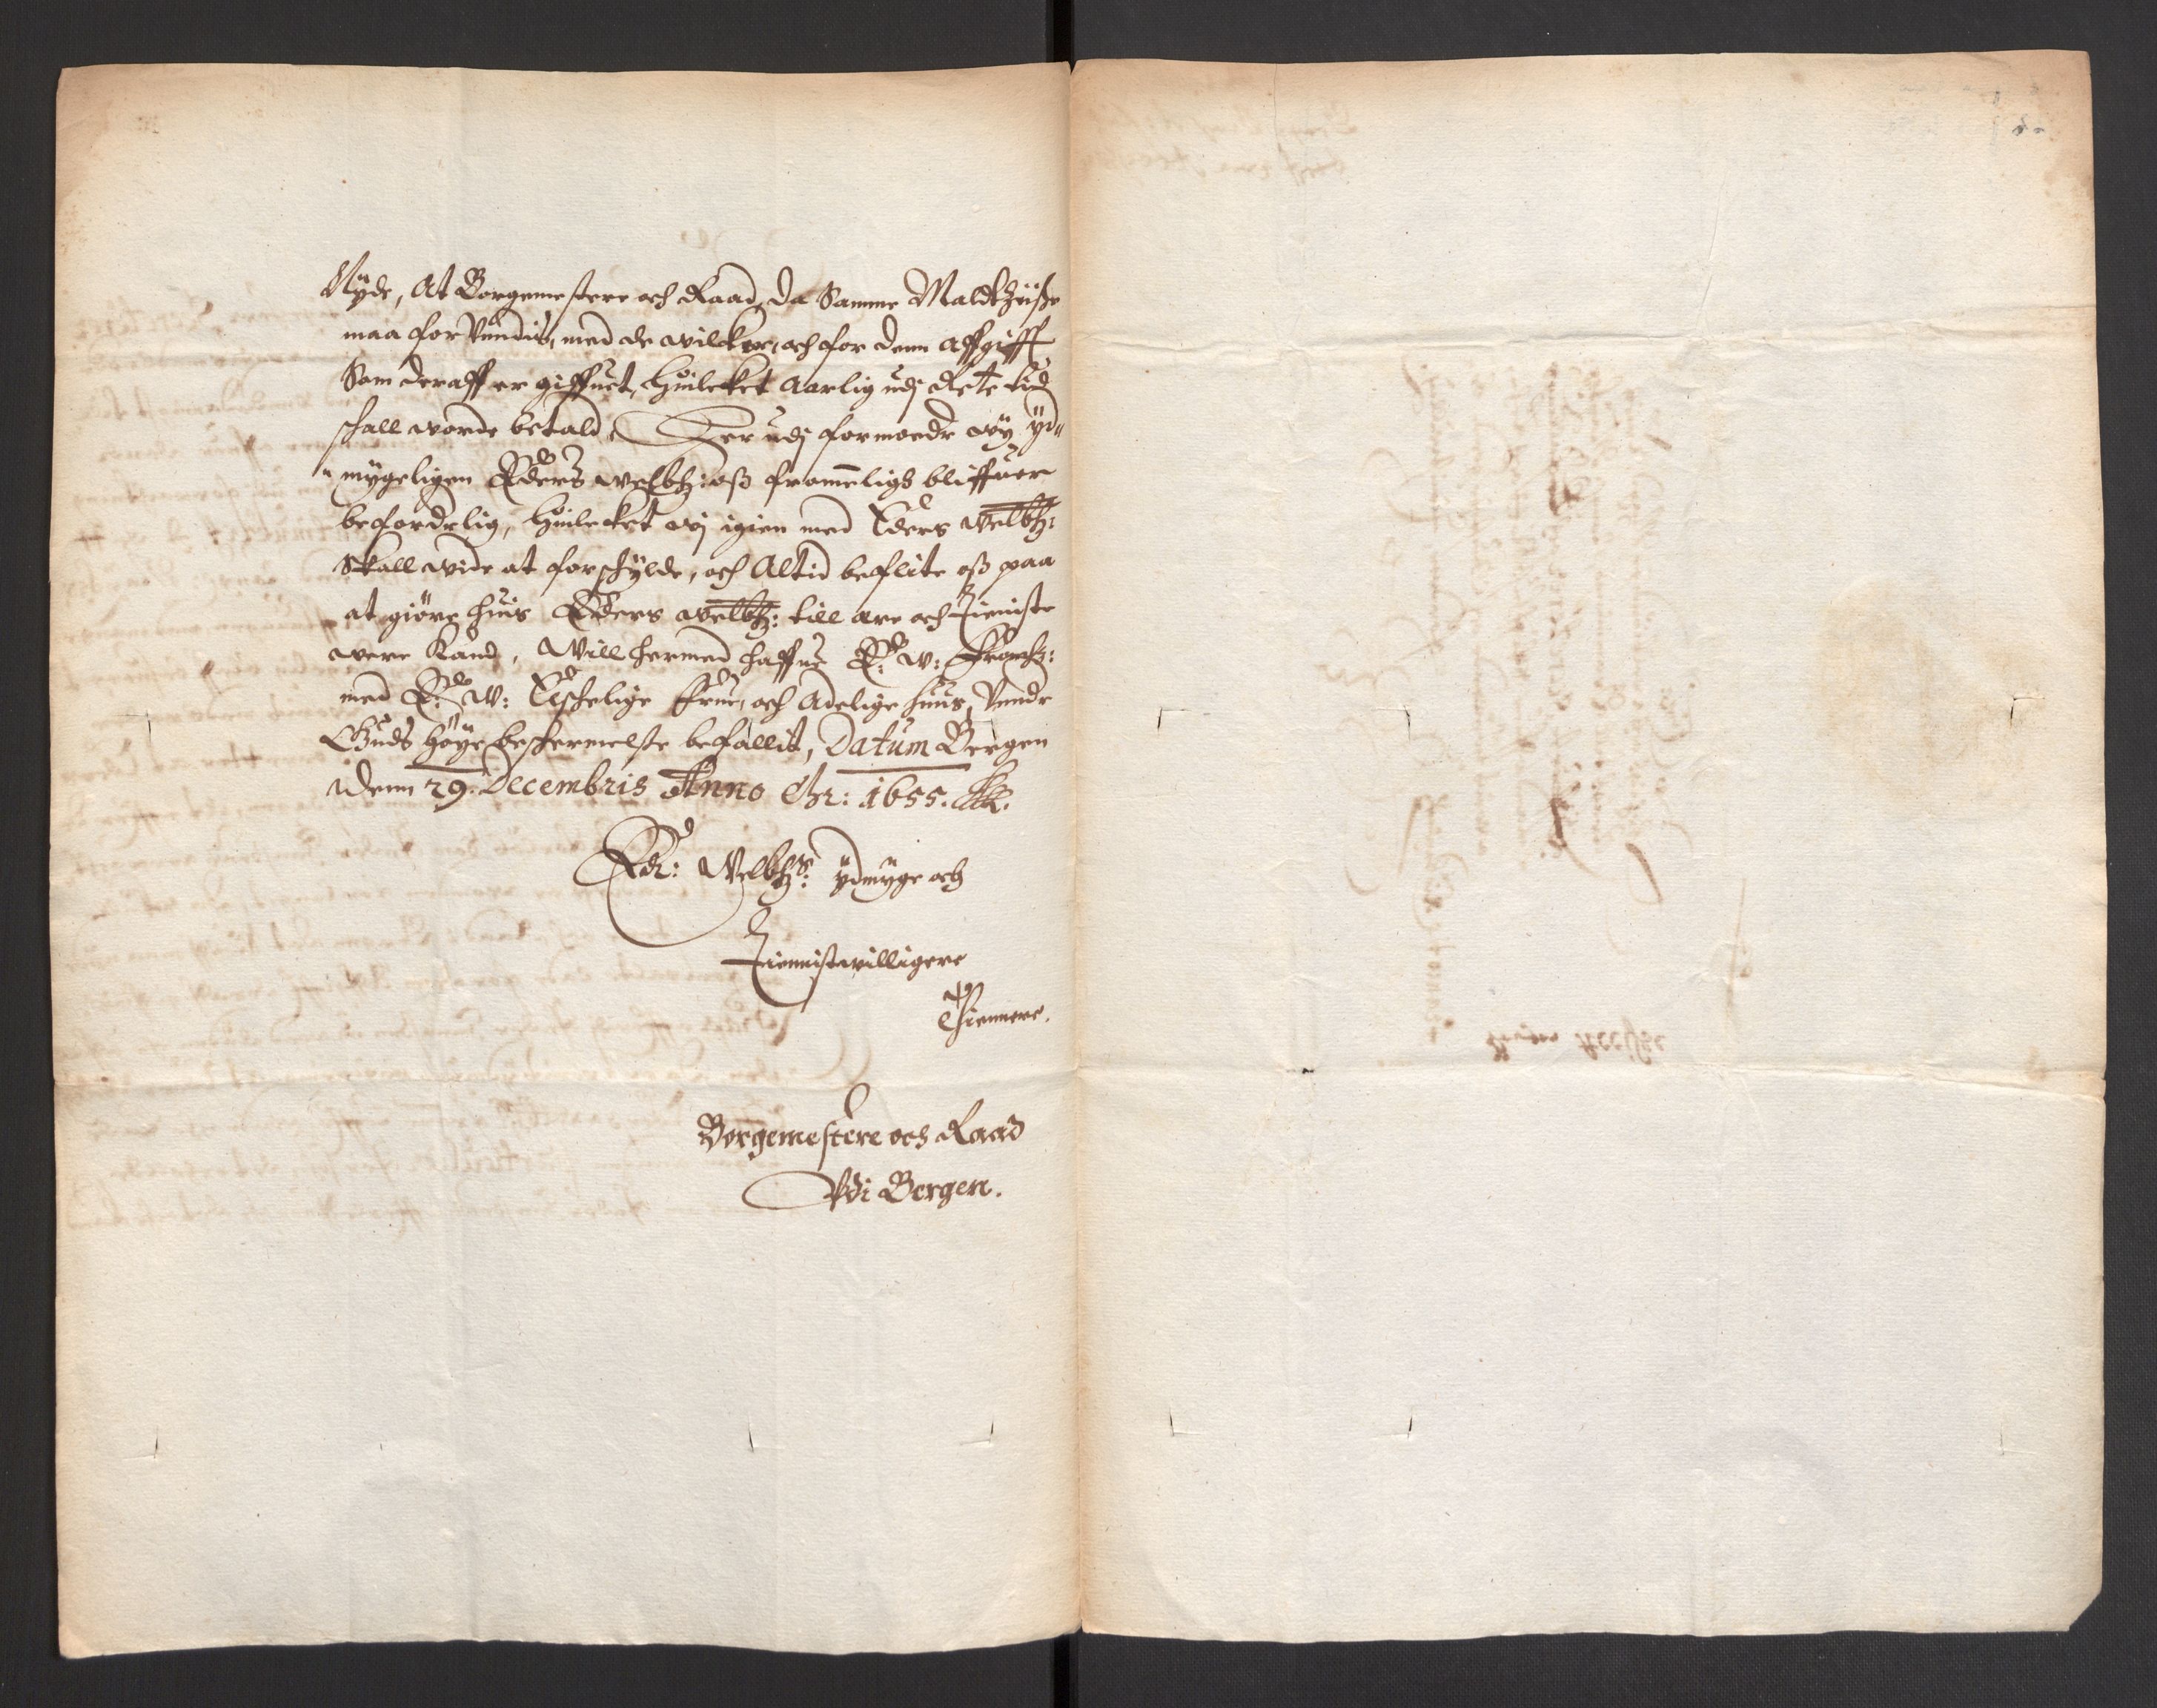 Nyde, At Borgemestere och Raad, da Samme Maldthuuße
maa forundis, med de wilckor, och for denn affgifft
Som deraff er giffuet, Huilcket Aarlig udj Rette tid
schall worde betald, Her udj formoede wy yd„
„mygeligen Eders welbh: oß frommeligs bliffuer
befordelig, Huilcket wj igien med Eders welbh:
Skall wide at forschylde, och Altid beflite oß paa
at giöre huis Eders welbh: till ære och tieniste
were kand, Will hermed haffue E: W:
med E: W: Elschelige frue, och Adelige huus, Vnde
Guds höye beschermelse befallit, Datum Bergen
denn 29. Decembris Anno Chr: 1655.
Ed: Welbh: ydmyge och
Tienistwilligere
Thiennere.
Borgemestere och Raad
Udi Bergen.